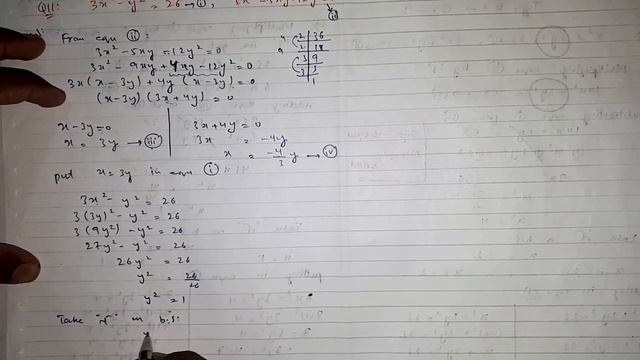 Q11: 3x² - y² = 26 → (i), 3x² - 5xy - 12y²
(ii)
From eqn (ii):
3x² - 5xy - 12y² = 0
3x² - 9xy + 4xy - 12y² = 0
3x(x - 3y) + 4y(x - 3y) = 0
(x - 3y)(3x + 4y) = 0
2 | 36
2 | 18
3 | 9
3 | 3
1
x - 3y = 0
x = 3y → (iii)
3x + 4y = 0
3x = -4y
x = -4/3 y → (iv)
put x = 3y in eqn (i)
3x² - y² = 26
3(3y)² - y² = 26
3(9y²) - y² = 26
27y² - y² = 26
26y² = 26
y² = 26/26
y² = 1
Take "√" on b.s.